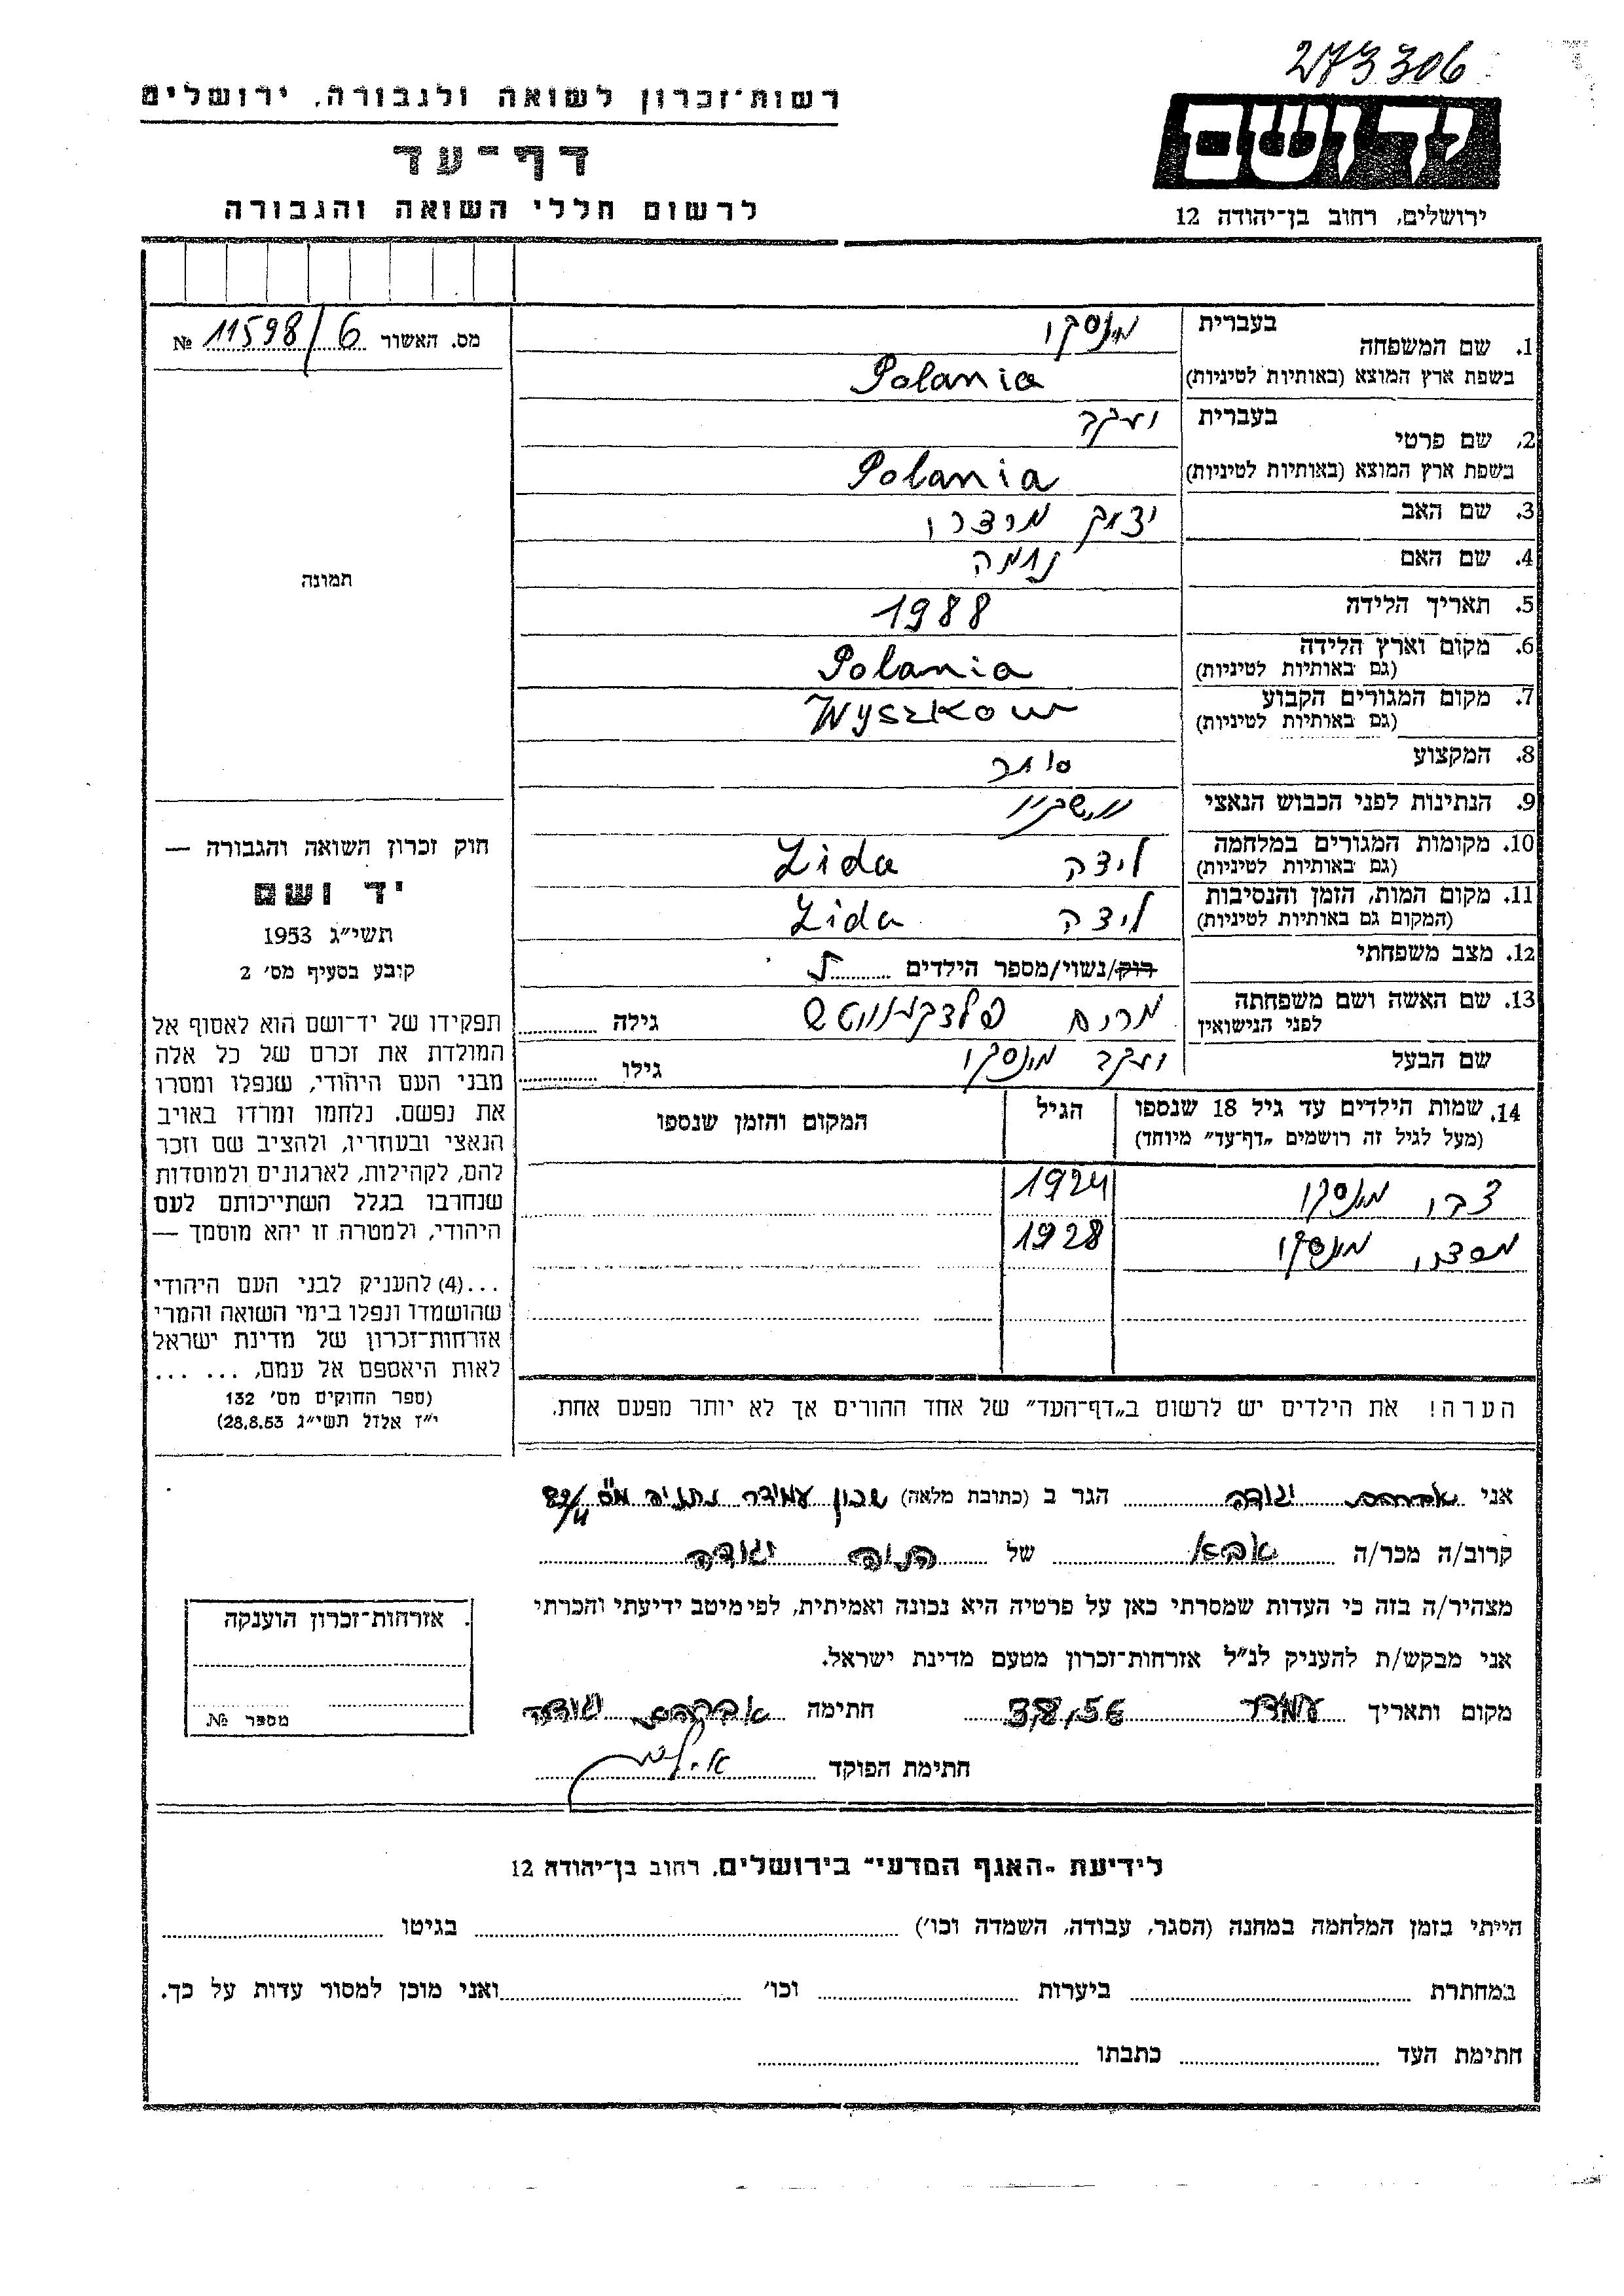 273306
רשות־זכרון לשואה ולגבורה, ירושלים
יד ושם
דף־עד
לרשום חללי השואה והגבורה
ירושלים, רחוב בן־יהודה 12
מס. האשור 11598/6 №
1. שם המשפחה
בעברית
בשפת ארץ המוצא (באותיות לטיניות) Polania
2. שם פרטי
בעברית
בשפת ארץ המוצא (באותיות לטיניות) Polania
3. שם האב יצחק
4. שם האם נחמה
5. תאריך הלידה 1988
6. מקום וארץ הלידה
(גם באותיות לטיניות) Polania
7. מקום המגורים הקבוע
(גם באותיות לטיניות) Wyszkow
8. המקצוע סוחר
9. הנתינות לפני הכבוש הנאצי
10. מקומות המגורים במלחמה
(גם באותיות לטיניות) לידה Lida
11. מקום המות, הזמן והנסיבות
(המקום גם באותיות לטיניות) לידה Lida
12. מצב משפחתי רוק/נשוי/מספר הילדים
13. שם האשה ושם משפחתה
לפני הנישואין מרים גילה
שם הבעל גילו
14. שמות הילדים עד גיל 18 שנספו
(מעל לגיל זה רושמים „דף־עד" מיוחד)
הגיל
המקום והזמן שנספו
1924
1928
הערה! את הילדים יש לרשום ב„דף־העד" של אחד ההורים אך לא יותר מפעם אחת.
תמונה
חוק זכרון השואה והגבורה —
יד ושם
תשי״ג 1953
קובע בסעיף מס׳ 2
תפקידו של יד־ושם הוא לאסוף אל
המולדת את זכרם של כל אלה
מבני העם היהודי, שנפלו ומסרו
את נפשם. נלחמו ומרדו באויב
הנאצי ובעוזריו, ולהציב שם וזכר
להם, לקהילות, לארגונים ולמוסדות
שנחרבו בגלל השתייכותם לעם
היהודי, ולמטרה זו יהא מוסמך —
...(4) להעניק לבני העם היהודי
שהושמדו ונפלו בימי השואה והמרי
אזרחות־זכרון של מדינת ישראל
לאות היאספם אל עמם, ... ...
(ספר החוקים מס׳ 132
י״ז אלול תשי״ג 28.8.53)
אני אברהם יגודה הגר ב (כתובת מלאה) שכון עמידר נתניה
קרוב/ה מכר/ה של חנה יגודה
מצהיר/ה בזה כי העדות שמסרתי כאן על פרטיה היא נכונה ואמיתית, לפי מיטב ידיעתי והכרתי
אני מבקש/ת להעניק לנ״ל אזרחות־זכרון מטעם מדינת ישראל.
מקום ותאריך עמידר חתימה אברהם יגודה
חתימת הפוקד
אזרחות־זכרון הוענקה
מספר №
לידיעת „האגף המדעי" בירושלים, רחוב בן־יהודה 12
הייתי בזמן המלחמה במחנה (הסגר, עבודה, השמדה וכו׳) בגיטו
במחתרת ביערות וכו׳ ואני מוכן למסור עדות על כך.
חתימת העד כתבתו